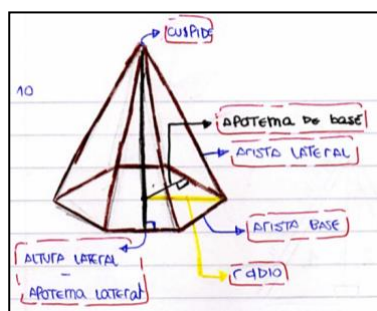 CUSPIDE
10
APOTEMA DE BASE
ARISTA LATERAL
ARISTA BASE
ALTURA LATERAL
-
APOTEMA LATERAL
RADIO